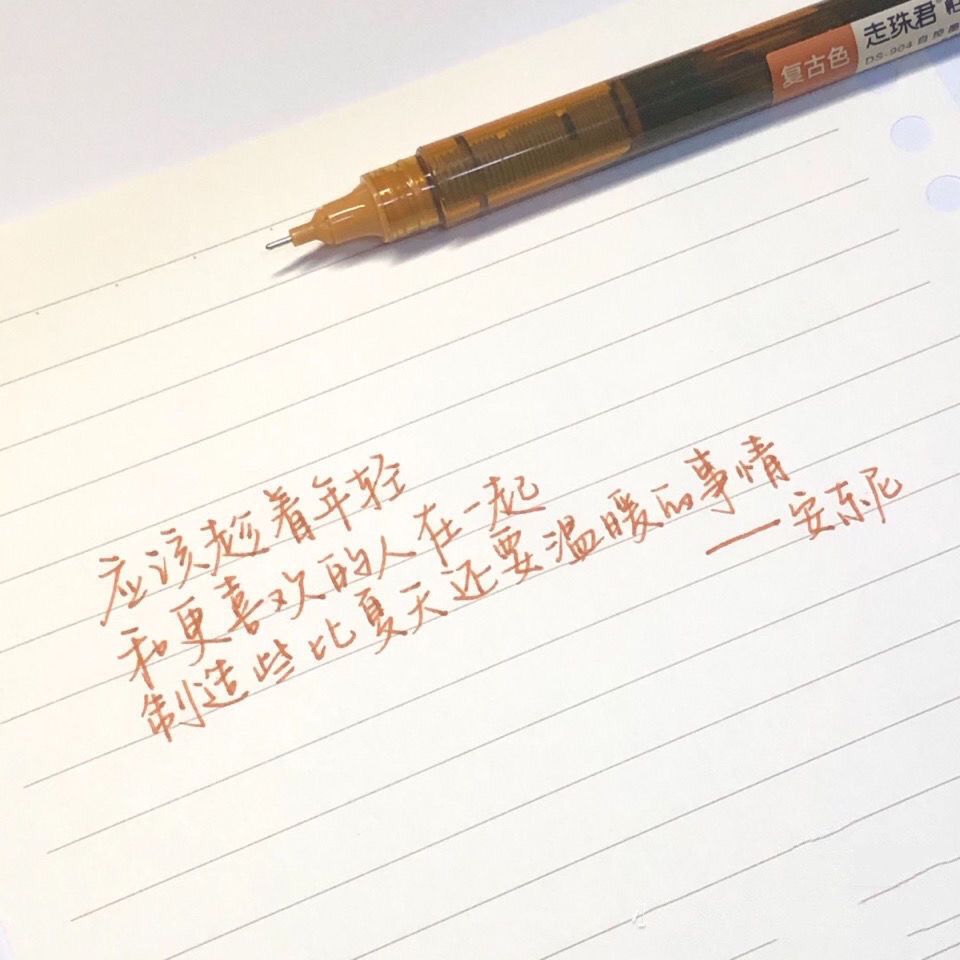 复古色
走珠君
DS-904 自控墨
应该趁着年轻
和更喜欢的人在一起
制造些比夏天还要温暖的事情
——安东尼